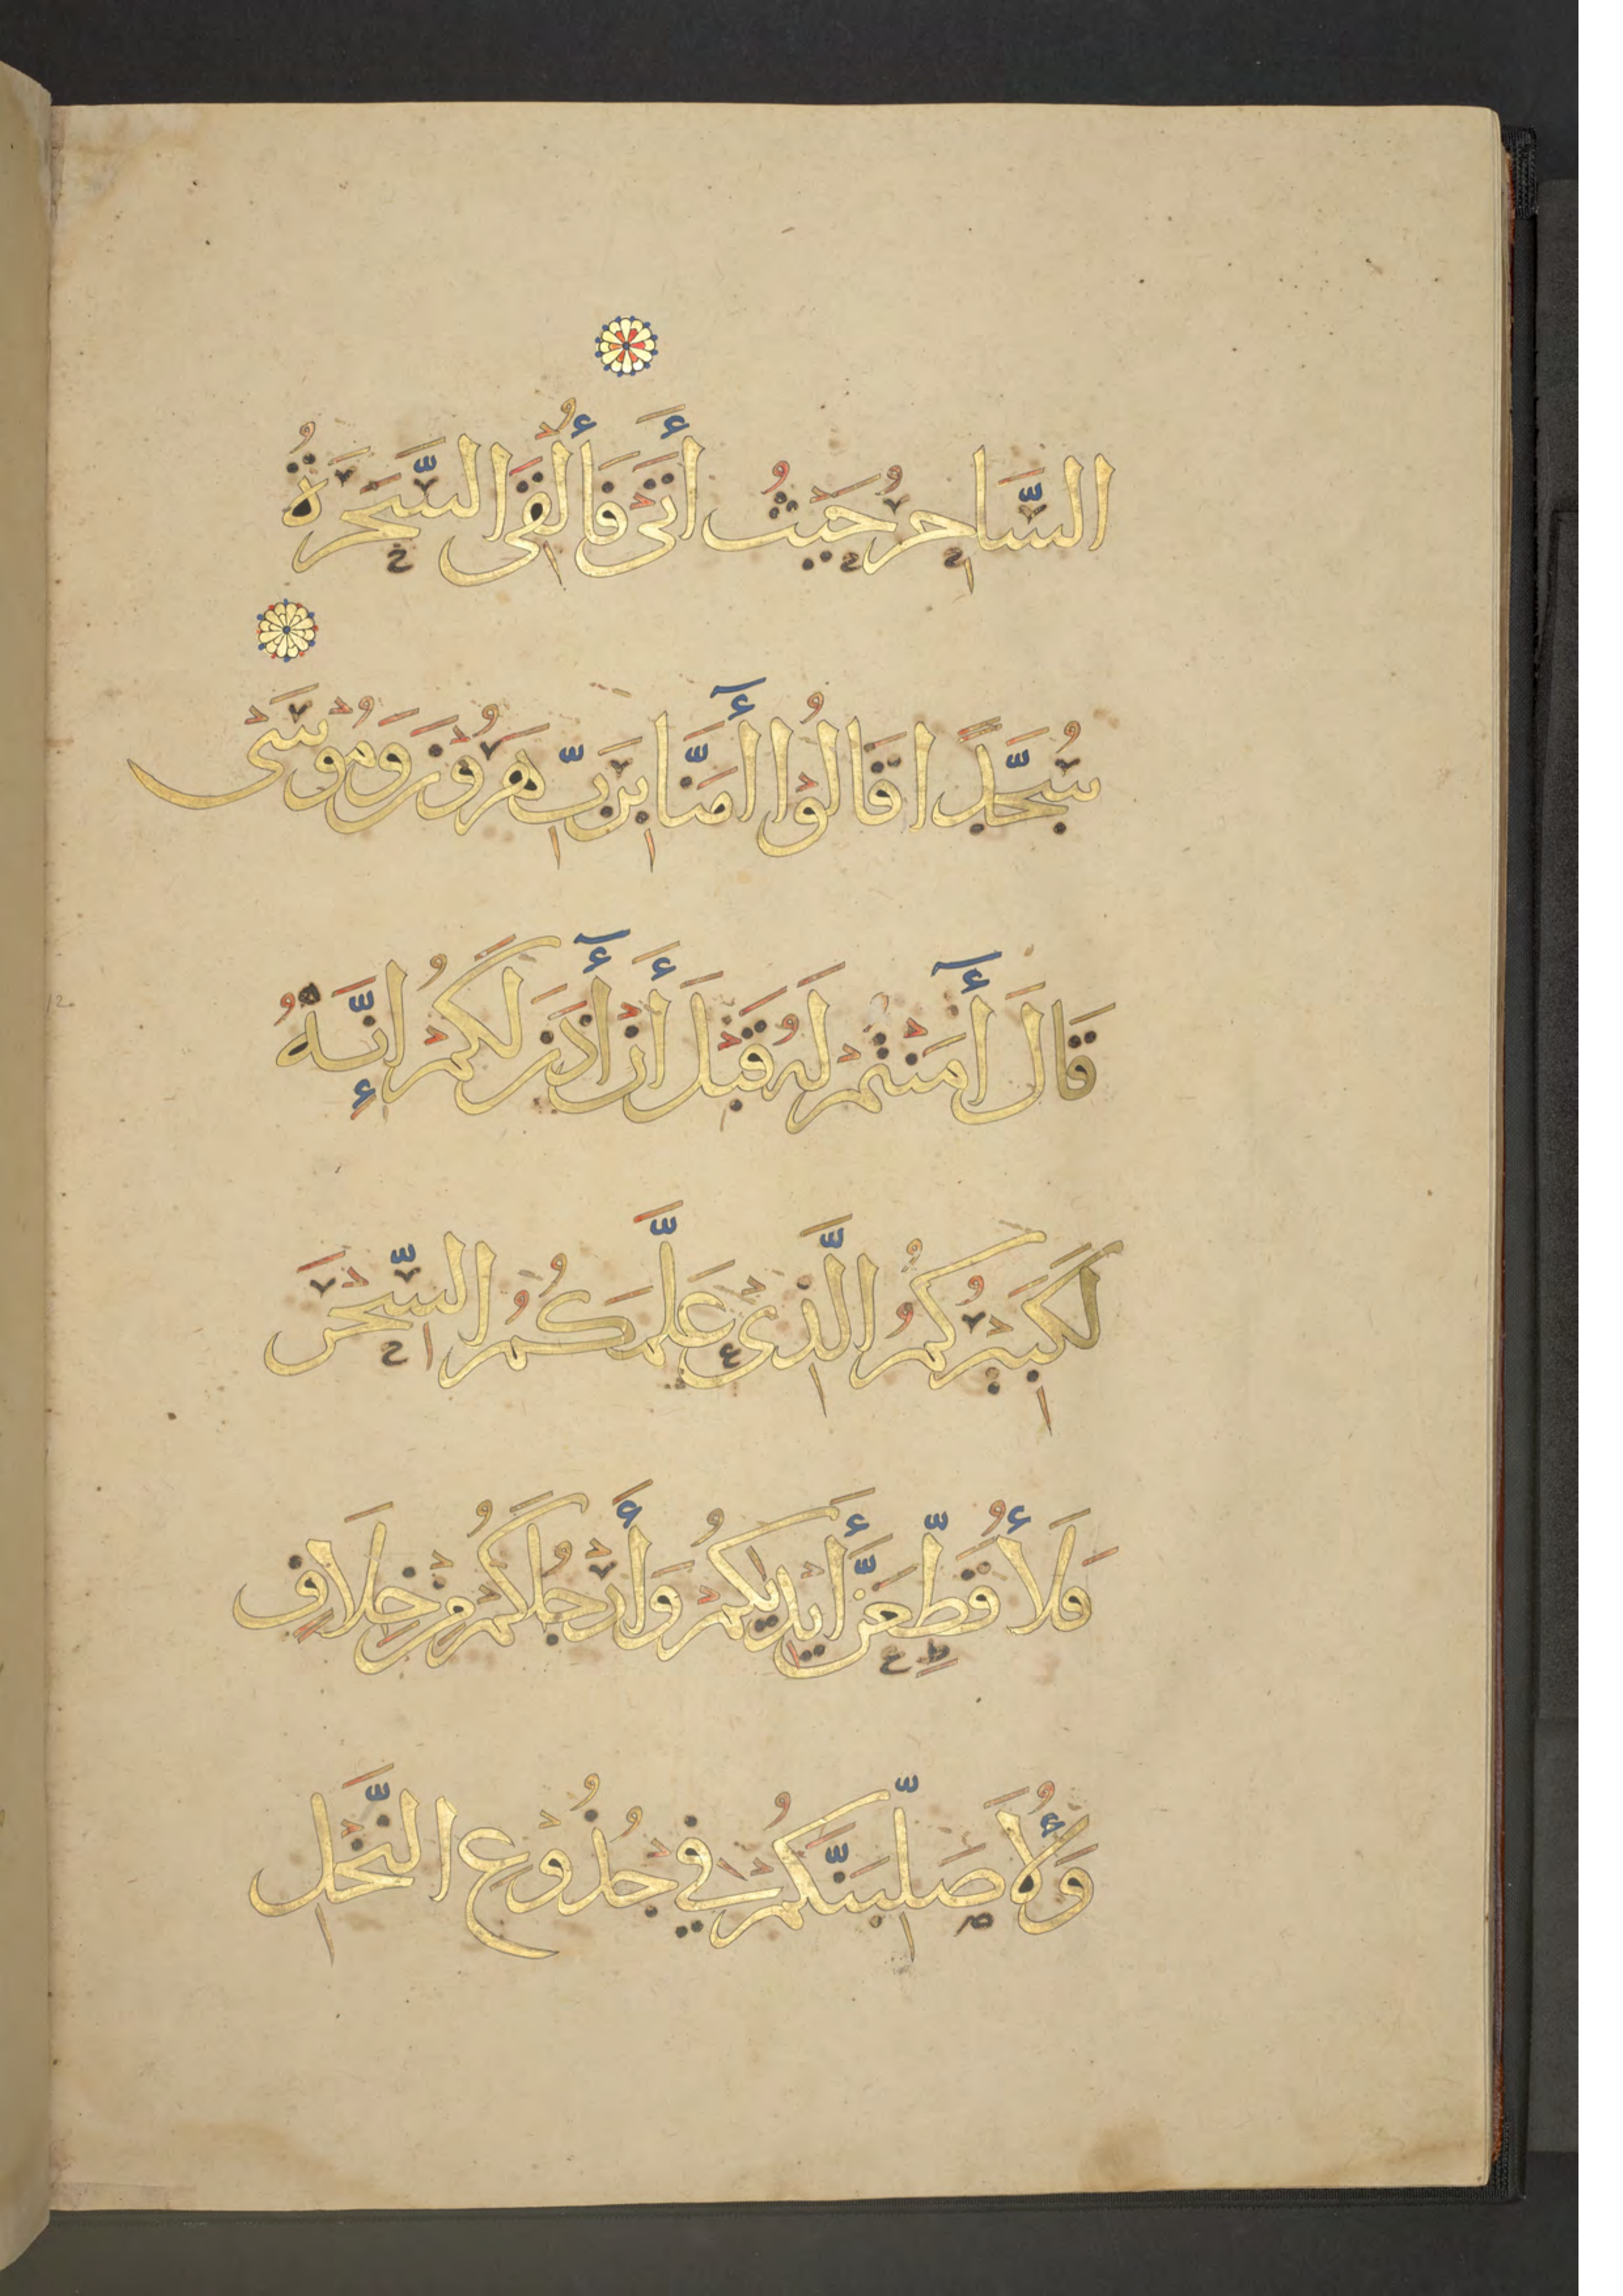 السَّاحِرُ حَيْثُ أَتَى فَأُلْقِىَ السَّحَرَةُ
سُجَّدًا قَالُوْا أٓمَنَّا بِرَبِّ هَرُوْنَ وَمُوْسَى
قَالَ أٓمَنْتُمْ لَهُ قَبْلَ أَنْ أٓذَنَ لَكُمْ إِنَّهُ
لَكَبِيْرُكُمُ الَّذِىْ عَلَّمَكُمُ السِّحْرَ
فَلَأُقَطِّعَنَّ أَيْدِيَكُمْ وَأَرْجُلَكُمْ مِنْ خِلَافٍ
وَلَأُصَلِّبَنَّكُمْ فِيْ جُذُوْعِ النَّخْلِ